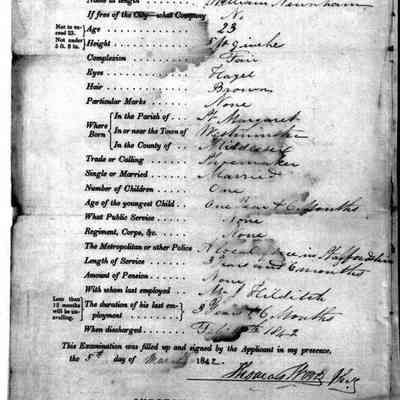 William Newnham
If free of the City—what Company No
Not to exceed 23. Age . . . . . . 23
Not under 5 ft. 8 in. Height . . . . . 5 ft 9 inches
Complexion . . . . . Fair
Eyes . . . . . . Hazel
Hair . . . . . . Brown
Particular Marks . . . . . None
Where Born { In the Parish of . . . St Margaret
In or near the Town of Westminster
In the County of . . . Middlesex
Trade or Calling . . . . Shoemaker
Single or Married . . . . Married
Number of Children . . . . One
Age of the youngest Child . . One Year & 6 Months
What Public Service . . . . None
Regiment, Corps, &c. . . . . None
The Metropolitan or other Police A Local in Staffordshire
Length of Service . . . . 3 Years and 6 months
Amount of Pension . . . . None
With whom last employed . . Hilditch
Less than 12 months will be unavailing. { The duration of his last employment . . . . . 3 Years & 6 Months
When discharged . . . . . 1842
This Examination was filled up and signed by the Applicant in my presence,
the 5th day of March 1842.
Thomas